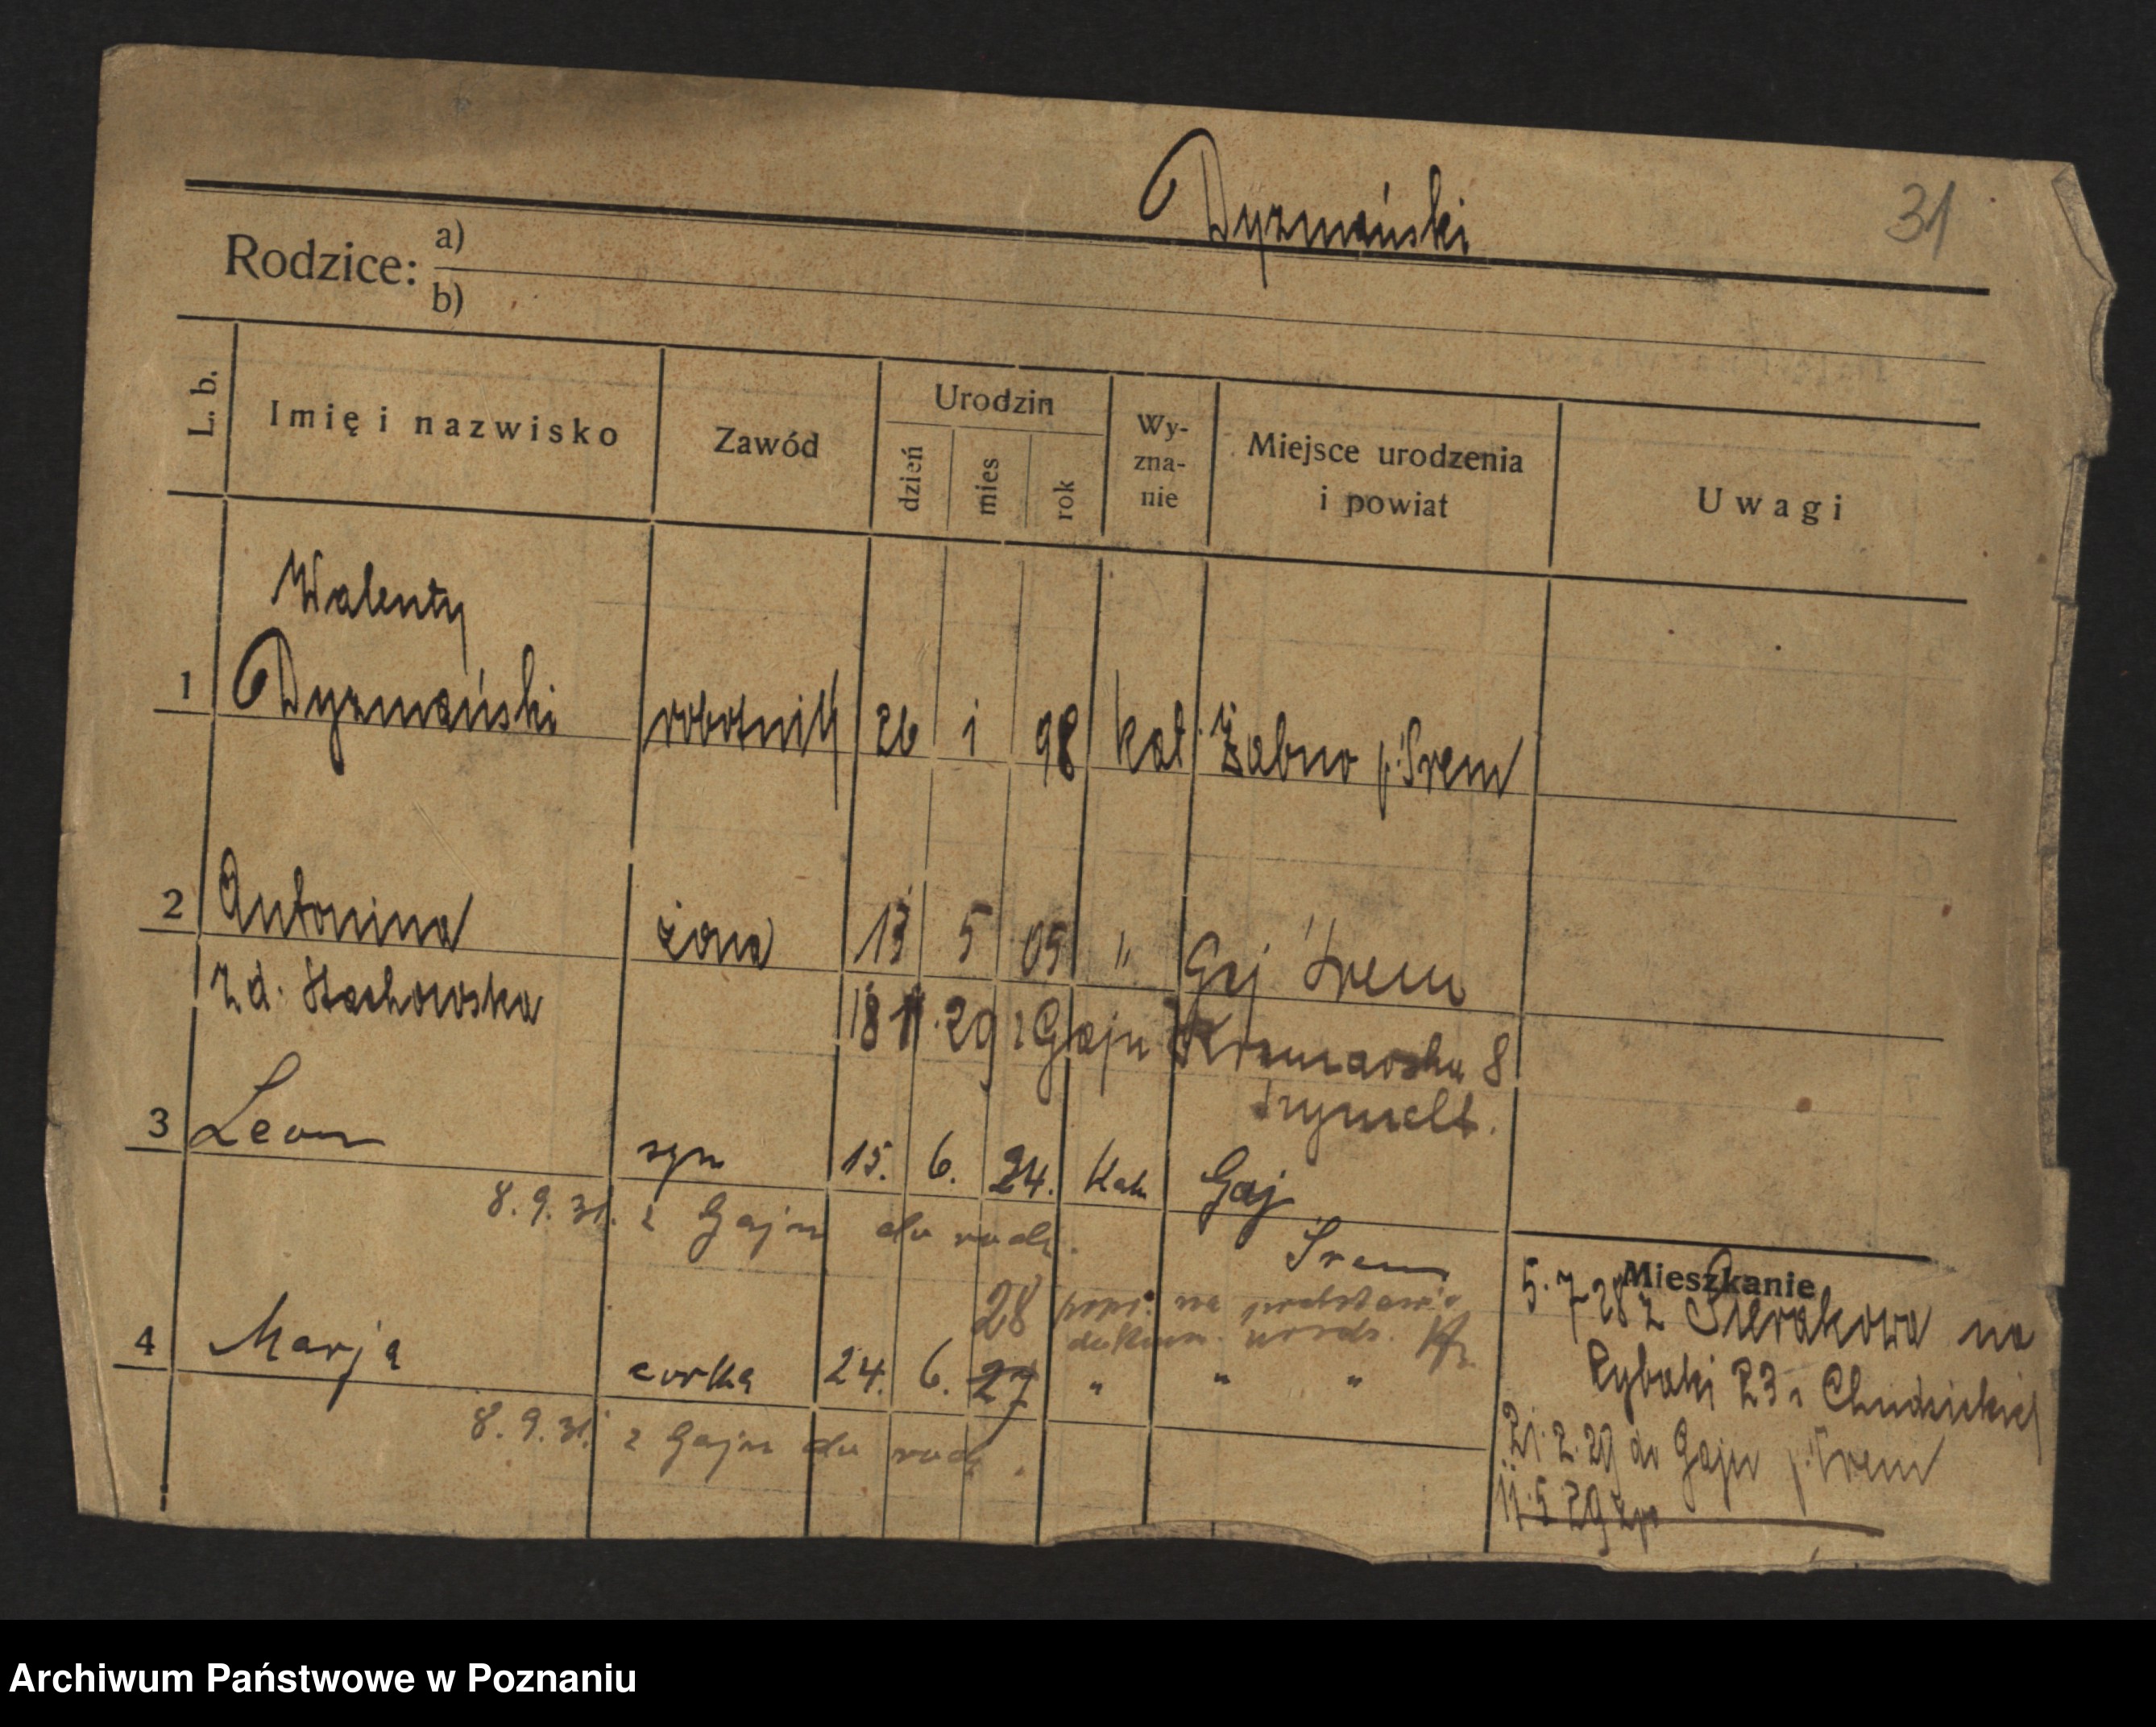 Dyzmański
31
Rodzice: a)
b)
L. b. Imię i nazwisko Zawód Urodzin dzień mies rok Wy-zna-nie Miejsce urodzenia i powiat Uwagi
Walenty
1 Dyzmański robotnik 26 1 98 kat. Żabno p. Śrem
2 Antonina żona 13 5 05 " Gaj Śrem
z d. Stachowska 18 11. 29 z Gaju 8
3 Leon syn 15. 6. 24. Kat. Gaj
8. 9. 31. z Gaju do rodz. Śrem
28 popr. na podstawie
dokum. urodz.
4 Marja corka 24. 6. 27 " " "
8. 9. 31. z Gaju do rodz.
Mieszkanie
5. 7 28 z Sierakowa na
Rybaki 23
21. 2. 29 do Gaju p. Śrem
11. 5 29
Archiwum Państwowe w Poznaniu